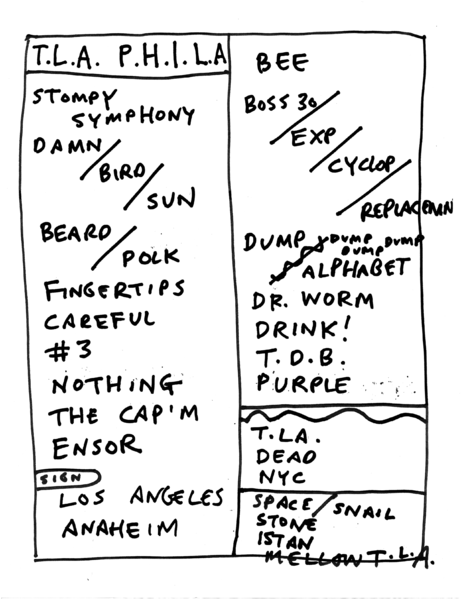 T.L.A. P.H.I.L.A
STOMPY
SYMPHONY
DAMN/
BIRD/
SUN
BEARD/
POLK
FINGERTIPS
CAREFUL
#3
NOTHING
THE CAP'M
ENSOR
SIGN
LOS ANGELES
ANAHEIM
BEE
BOSS 30/
EXP/
CYCLOP/
REPLACEMN
DUMP DUMP DUMP DUMP
ALPHABET
DR. WORM
DRINK!
T.D.B.
PURPLE
T.L.A.
DEAD
NYC
SPACE/SNAIL
STONE
ISTAN
MELLOW T.L.A.